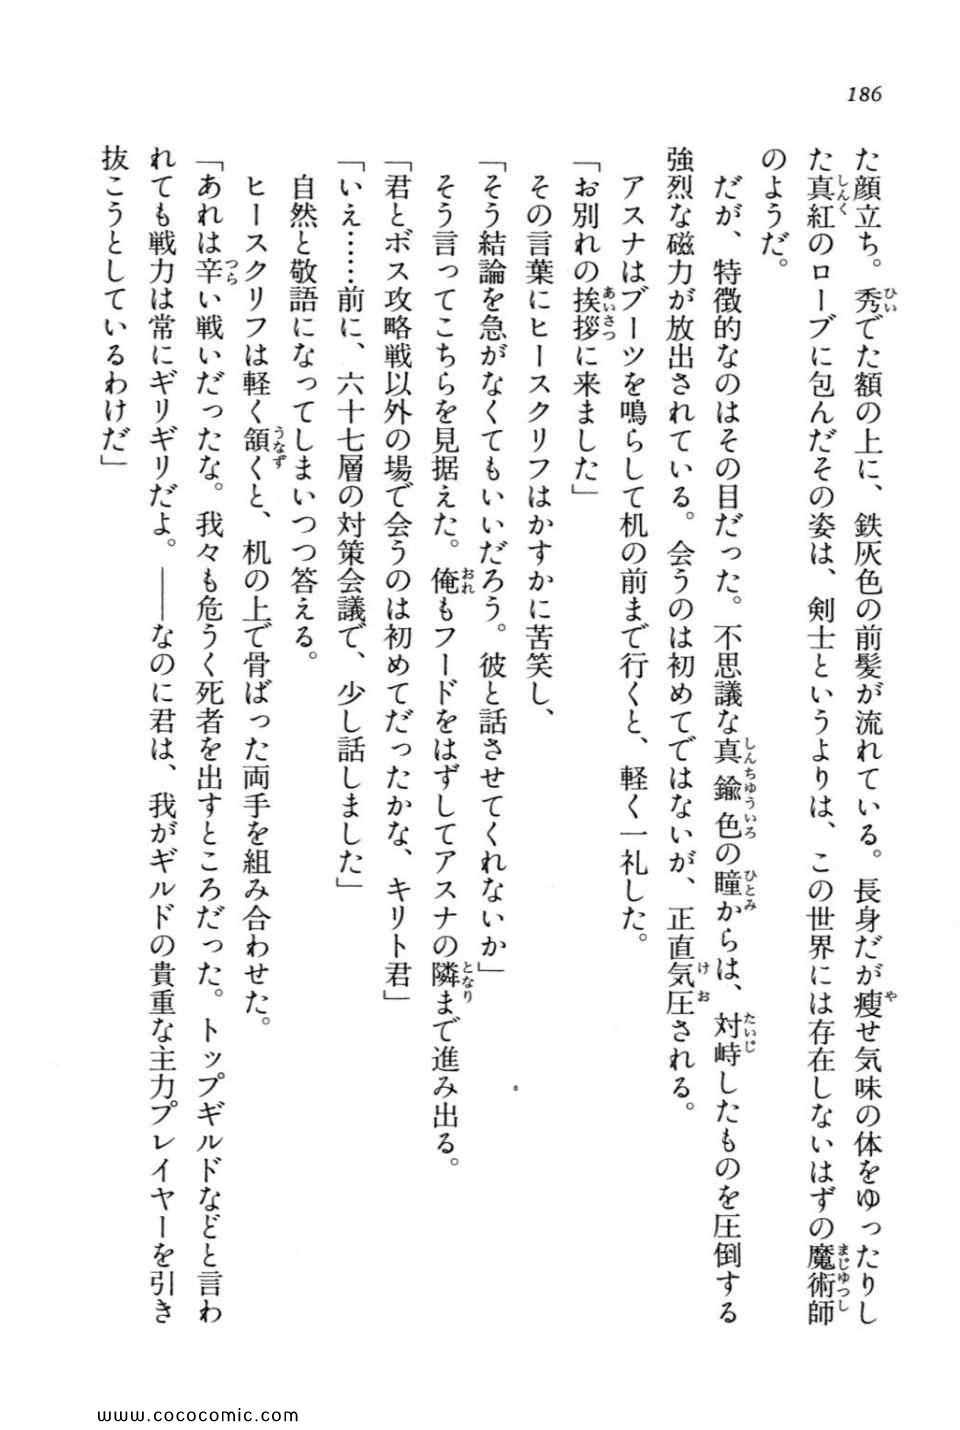 186
た顔立ち。秀でた額の上に、鉄灰色の前髪が流れている。長身だが痩せ気味の体をゆったりし
た真紅のローブに包んだその姿は、剣士というよりは、この世界には存在しないはずの魔術師
のようだ。
だが、特徴的なのはその目だった。不思議な真鍮色の瞳からは、対峙したものを圧倒する
強烈な磁力が放出されている。会うのは初めてではないが、正直気圧される。
アスナはブーツを鳴らして机の前まで行くと、軽く一礼した。
「お別れの挨拶に来ました」
その言葉にヒースクリフはかすかに苦笑し、
「そう結論を急がなくてもいいだろう。彼と話させてくれないか」
そう言ってこちらを見据えた。俺もフードをはずしてアスナの隣まで進み出る。
「君とボス攻略戦以外の場で会うのは初めてだったかな、キリト君」
「いえ……前に、六十七層の対策会議で、少し話しました」
自然と敬語になってしまいつつ答える。
ヒースクリフは軽く頷くと、机の上で骨ばった両手を組み合わせた。
「あれは辛い戦いだったな。我々も危うく死者を出すところだった。トップギルドなどと言わ
れても戦力は常にギリギリだよ。――なのに君は、我がギルドの貴重な主力プレイヤーを引き
抜こうとしているわけだ」
www.cococomic.com